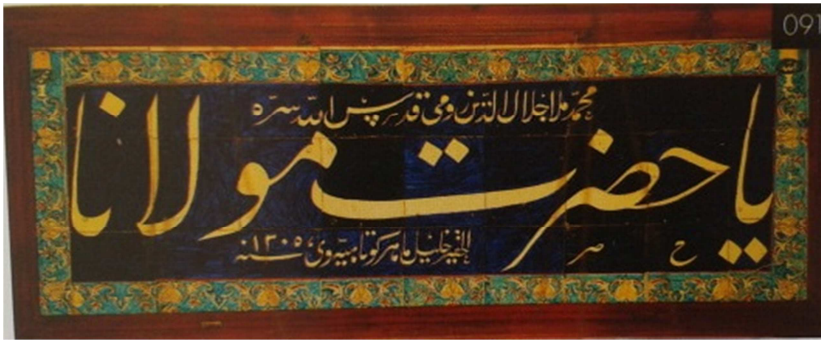 091
محمد ملا جلال الدين رومى قدس الله سره
يا حضرت مولانا
ح ضر
الفقير خليل ماهر كوتاهيوى سنه ١٣٠٥